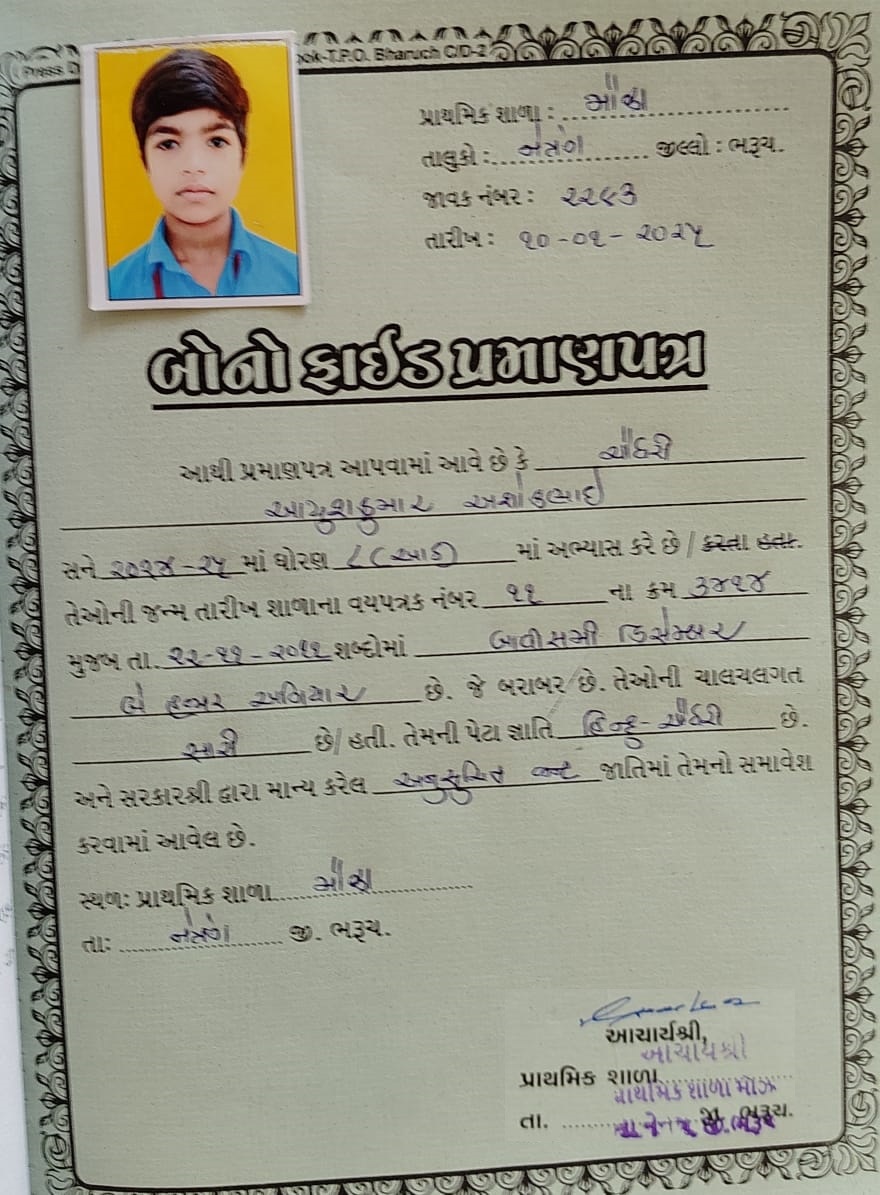 Press D ook-T.P.O. Bharuch C/D-2
પ્રાથમિક શાળા : મોઝા
તાલુકો : નેત્રંગ જીલ્લો : ભરૂચ.
જાવક નંબર : ૨૨૯૩
તારીખ : ૧૦-૦૧-૨૦૨૫
બોનો ફાઈડ પ્રમાણપત્ર
આથી પ્રમાણપત્ર આપવામાં આવે છે કે ચૌધરી
આયુશકુમાર અશોકભાઈ
સને ૨૦૨૪-૨૫ માં ધોરણ ૮ (આઠ) માં અભ્યાસ કરે છે / કરતા હતા.
તેઓની જન્મ તારીખ શાળાના વયપત્રક નંબર ૧૧ ના ક્રમ ૩૪૧૪
મુજબ તા. ૨૨-૧૧-૨૦૧૧ શબ્દોમાં બાવીસમી ડિસેમ્બર
બે હજાર અગિયાર છે. જે બરાબર છે. તેઓની ચાલચલગત
સારી છે/હતી. તેમની પેટા જ્ઞાતિ હિન્દુ-ચૌધરી છે.
અને સરકારશ્રી દ્વારા માન્ય કરેલ અનુસુચિત જન જાતિમાં તેમનો સમાવેશ
કરવામાં આવેલ છે.
સ્થળ: પ્રાથમિક શાળા મોઝા
તા: નેત્રંગ જી. ભરૂચ.
આચાર્યશ્રી,
આચાર્યશ્રી
પ્રાથમિક શાળા
પ્રાથમિક શાળા મોઝા
તા. જી. ભરૂચ.
તા. નેત્રંગ જી. ભરૂચ